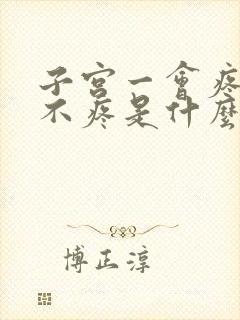 子宫一會疼
不疼是什麼
博正淳